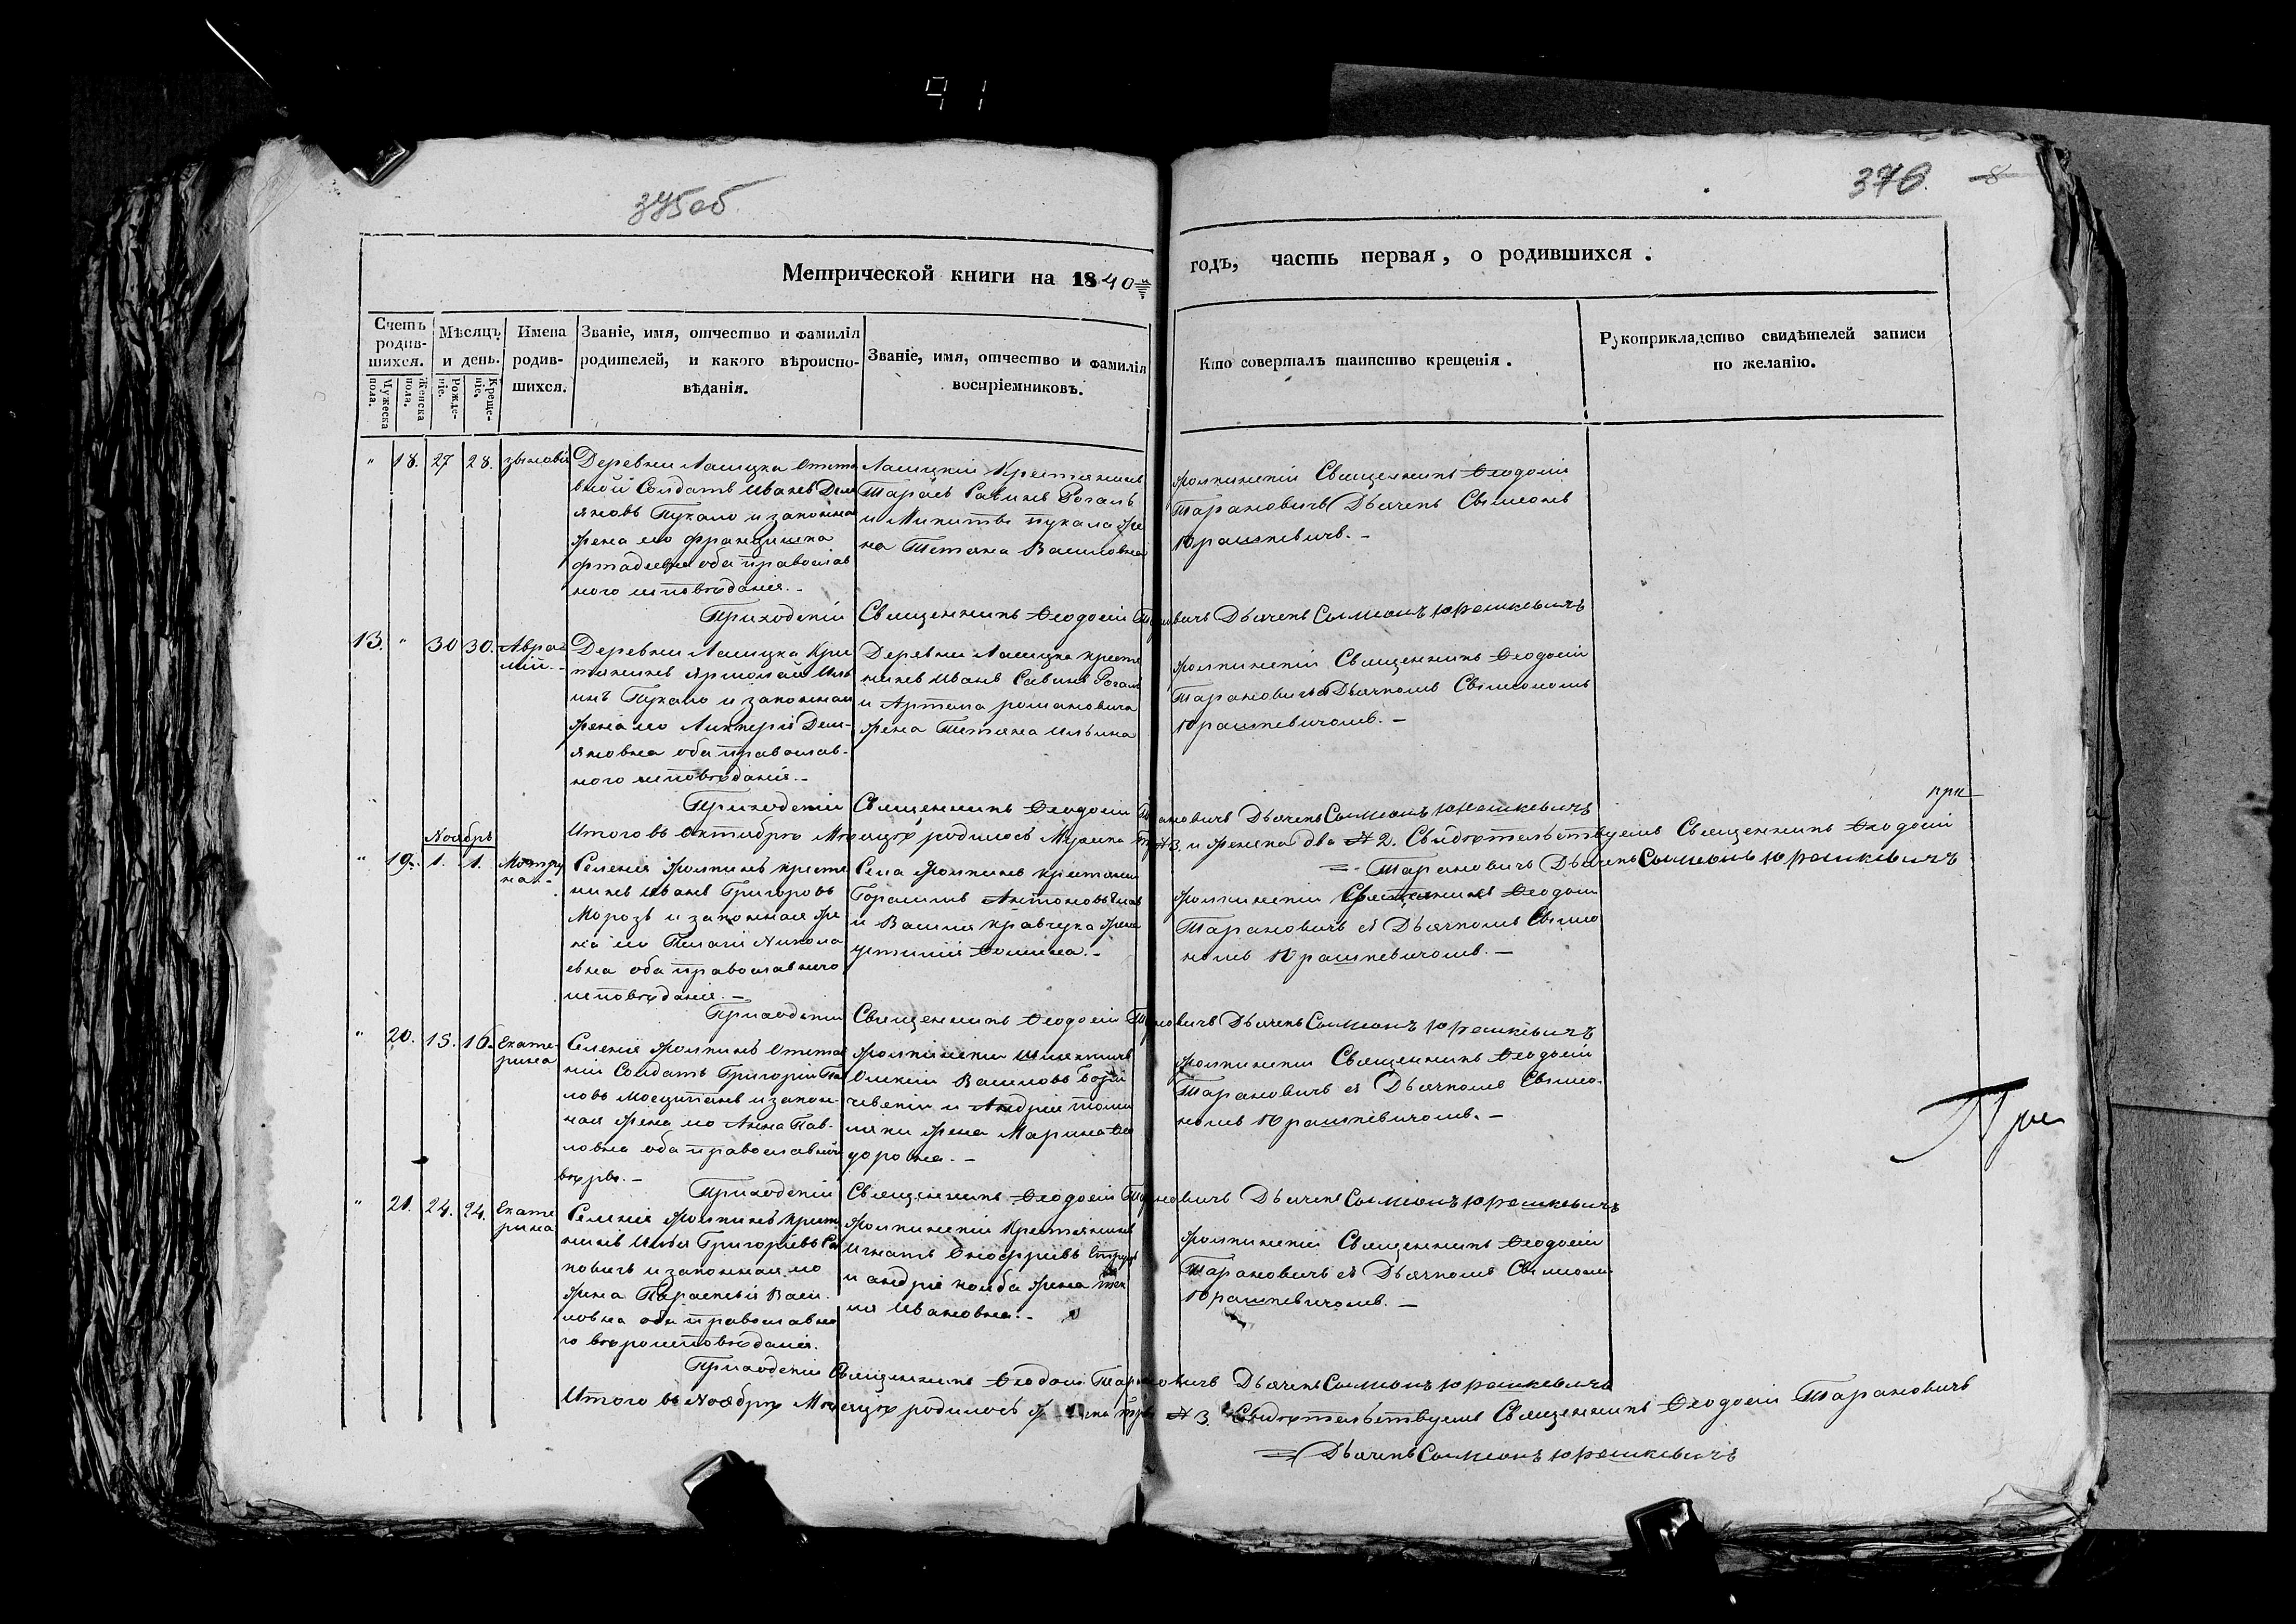 91
375об
376. 8
Метрической книги на 1840
годъ, часть первая, о родившихся.
Счетъ родив-шихся.
Мужеска пола.
Женска пола.
Мѣсяцъ и день.
Рожде-ніе.
Креще-ніе.
Имена родив-шихся.
Званіе, имя, отчество и фамилія родителей, и какого вѣроиспо-вѣданія.
Званіе, имя, отчество и фамилія воспріемниковъ.
Кто совершалъ таинство крещенія.
Рукоприкладство свидѣтелей записи по желанію.
" 18. 27 28.
Деревни Ласицка Отста
вной Солдатъ Иванъ Деми
яновъ Пукало и законная
жена его Францишка
оба православ
ного исповѣданія.-
Ласицкій Крестянинъ
Тарасъ Савинъ Рогаль
и Микиты Пукала же
на Тетяна Василовна
Священникъ Ѳеодосій
Тарановичъ Дьячекъ Свимеонъ
Юрашкевичъ.-
Приходскій Священникъ Ѳеодосій Тарановичъ Дьячекъ Сымеонъ Юрашкевичъ
13. " 30 30. Авра
мій.-
Деревни Ласицка Кре
стянинъ Ярмолай Иль
инъ Пукало и законная
жена его Ликтерія Дем-
яновна оба православ-
ного исповѣданія.-
Деревни Ласицка кресте
нинъ Иванъ Савинъ Рогаль
и Артема романовича
жена Тетяна Ильина
Священникъ Ѳеодосій
Тарановичъ съ Дьячкомъ Свимеономъ
Юрашкевичомъ.-
Приходскій Священникъ Ѳеодосій Тарановичъ Дьячекъ Сымеонъ Юрашкевичъ
при
Итого въ Октябрѣ Мѣсяцѣ родилось Мужека три №3 и Женска два №2. Свидѣтельствуемъ Священникъ Ѳеодосій
Тарановичъ Дьячекъ Сымеонъ Юрашкевичъ
Ноябрь
" 19. 1. 1. Мотру
на.-
Иванъ Григоровъ
Морозъ и законная же
на его Пелагія Никола
евна оба православного
исповѣданія.-
Антоновъ
и Василя Кравчука жена
Устинія Ѳомина.-
Священникъ Ѳеодосій
Тарановичъ съ Дьячкомъ Свимео
номъ Юрашкевичомъ.-
Приходскій Священникъ Ѳеодосій Тарановичъ Дьячекъ Сымеонъ Юрашкевичъ
" 20. 15. 16. Екате-
рина
Солдатъ Григорій Пав
ловъ и закон-
ная жена его Анна Пав-
ловна оба православной
вѣры.-
Василовъ
и Андрія
жена Марина Ѳео
доровна.-
Священникъ Ѳеодосій
Тарановичъ съ Дьячкомъ Свимео-
номъ Юрашкевичомъ.-
При
Приходскій Священникъ Ѳеодосій Тарановичъ Дьячекъ Сымеонъ Юрашкевичъ
" 21. 24. 24. Екате
рина
Илья Григоріевъ
и законная его
жена Параскевія Васи
ловна оба православно
го вѣроисповѣданія.
Крестянинъ
Игнатъ Онофріевъ
и андрія жена
Ивановна.-
Священникъ Ѳеодосій
Тарановичъ съ Дьячкомъ Свимеоно
Юрашкевичомъ.-
Приходскій Священникъ Ѳеодосій Тарановичъ Дьячекъ Сымеонъ Юрашкевичъ
Итого въ Ноябрѣ Мѣсяцѣ родилось три №3. Свидѣтельствуемъ Священникъ Ѳеодосій Тарановичъ
Дьячекъ Сымеонъ Юрашкевичъ